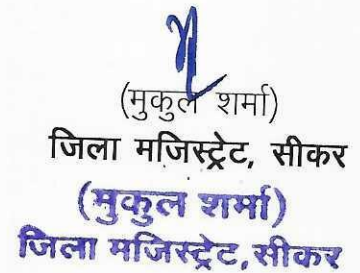 (मुकुल शर्मा)
जिला मजिस्ट्रेट, सीकर
(मुकुल शर्मा)
जिला मजिस्ट्रेट,सीकर